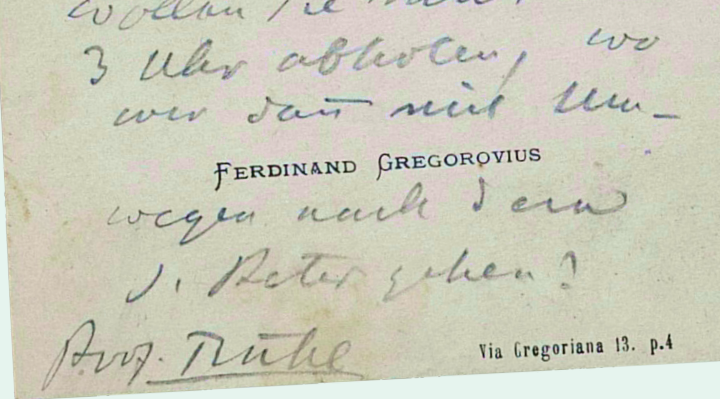 wollen Sie mich
3 Uhr abholen, wo
wir dañ mit Um-
FERDINAND GREGOROVIUS
wegen nach dem
S. Peter gehen?
Prof. Rühl
Via Gregoriana 13. p.4